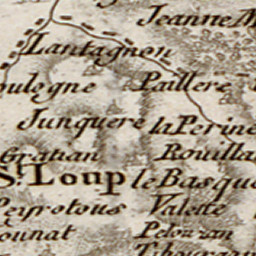 Jeanne M
Lantagnon
oulogne Paillere
Junquere la Perine
Gratian Rouilla
St. Loup le Basque
Peyrotous Valette
ounat Pelouzan